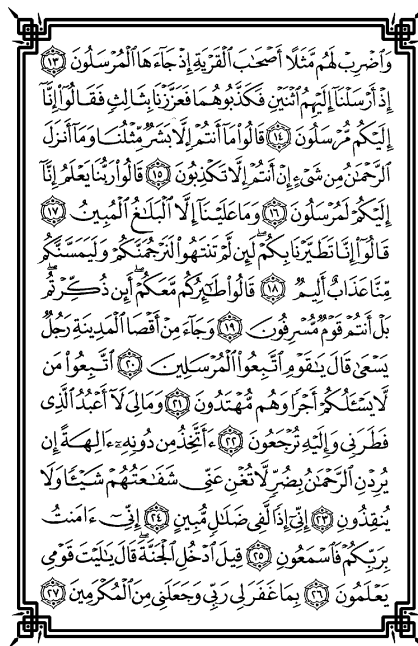 وَاَضْرِبْ لَهُم مَّثَلًا أَصْحَٰبَ الْقَرْيَةِ إِذْ جَآءَهَا الْمُرْسَلُونَ ١٣
إِذْ أَرْسَلْنَآ إِلَيْهِمُ اثْنَيْنِ فَكَذَّبُوهُمَا فَعَزَّزْنَا بِثَالِثٍ فَقَالُوٓا۟ إِنَّآ
إِلَيْكُم مُّرْسَلُونَ ١٤ قَالُوا۟ مَآ أَنتُمْ إِلَّا بَشَرٌ مِّثْلُنَا وَمَآ أَنزَلَ
الرَّحْمَٰنُ مِن شَىْءٍ إِنْ أَنتُمْ إِلَّا تَكْذِبُونَ ١٥ قَالُوا۟ رَبُّنَا يَعْلَمُ إِنَّآ
إِلَيْكُمْ لَمُرْسَلُونَ ١٦ وَمَا عَلَيْنَآ إِلَّا الْبَلَٰغُ الْمُبِينُ ١٧
قَالُوٓا۟ إِنَّا تَطَيَّرْنَا بِكُمْ ۖ لَئِن لَّمْ تَنتَهُوا۟ لَنَرْجُمَنَّكُمْ وَلَيَمَسَّنَّكُم
مِّنَّا عَذَابٌ أَلِيمٌ ١٨ قَالُوا۟ طَٰٓئِرُكُم مَّعَكُمْ ۚ أَئِن ذُكِّرْتُم ۚ
بَلْ أَنتُمْ قَوْمٌ مُّسْرِفُونَ ١٩ وَجَآءَ مِنْ أَقْصَا الْمَدِينَةِ رَجُلٌ
يَسْعَىٰ قَالَ يَٰقَوْمِ اتَّبِعُوا۟ الْمُرْسَلِينَ ٢٠ اتَّبِعُوا۟ مَن
لَّا يَسْـَٔلُكُمْ أَجْرًا وَهُم مُّهْتَدُونَ ٢١ وَمَالِىَ لَآ أَعْبُدُ الَّذِى
فَطَرَنِى وَإِلَيْهِ تُرْجَعُونَ ٢٢ ءَأَتَّخِذُ مِن دُونِهِۦٓ ءَالِهَةً إِن
يُرِدْنِ الرَّحْمَٰنُ بِضُرٍّ لَّا تُغْنِ عَنِّى شَفَٰعَتُهُمْ شَيْـًٔا وَلَا
يُنقِذُونِ ٢٣ إِنِّىٓ إِذًا لَّفِى ضَلَٰلٍ مُّبِينٍ ٢٤ إِنِّىٓ ءَامَنتُ
بِرَبِّكُمْ فَاسْمَعُونِ ٢٥ قِيلَ ادْخُلِ الْجَنَّةَ ۖ قَالَ يَٰلَيْتَ قَوْمِى
يَعْلَمُونَ ٢٦ بِمَا غَفَرَ لِى رَبِّى وَجَعَلَنِى مِنَ الْمُكْرَمِينَ ٢٧